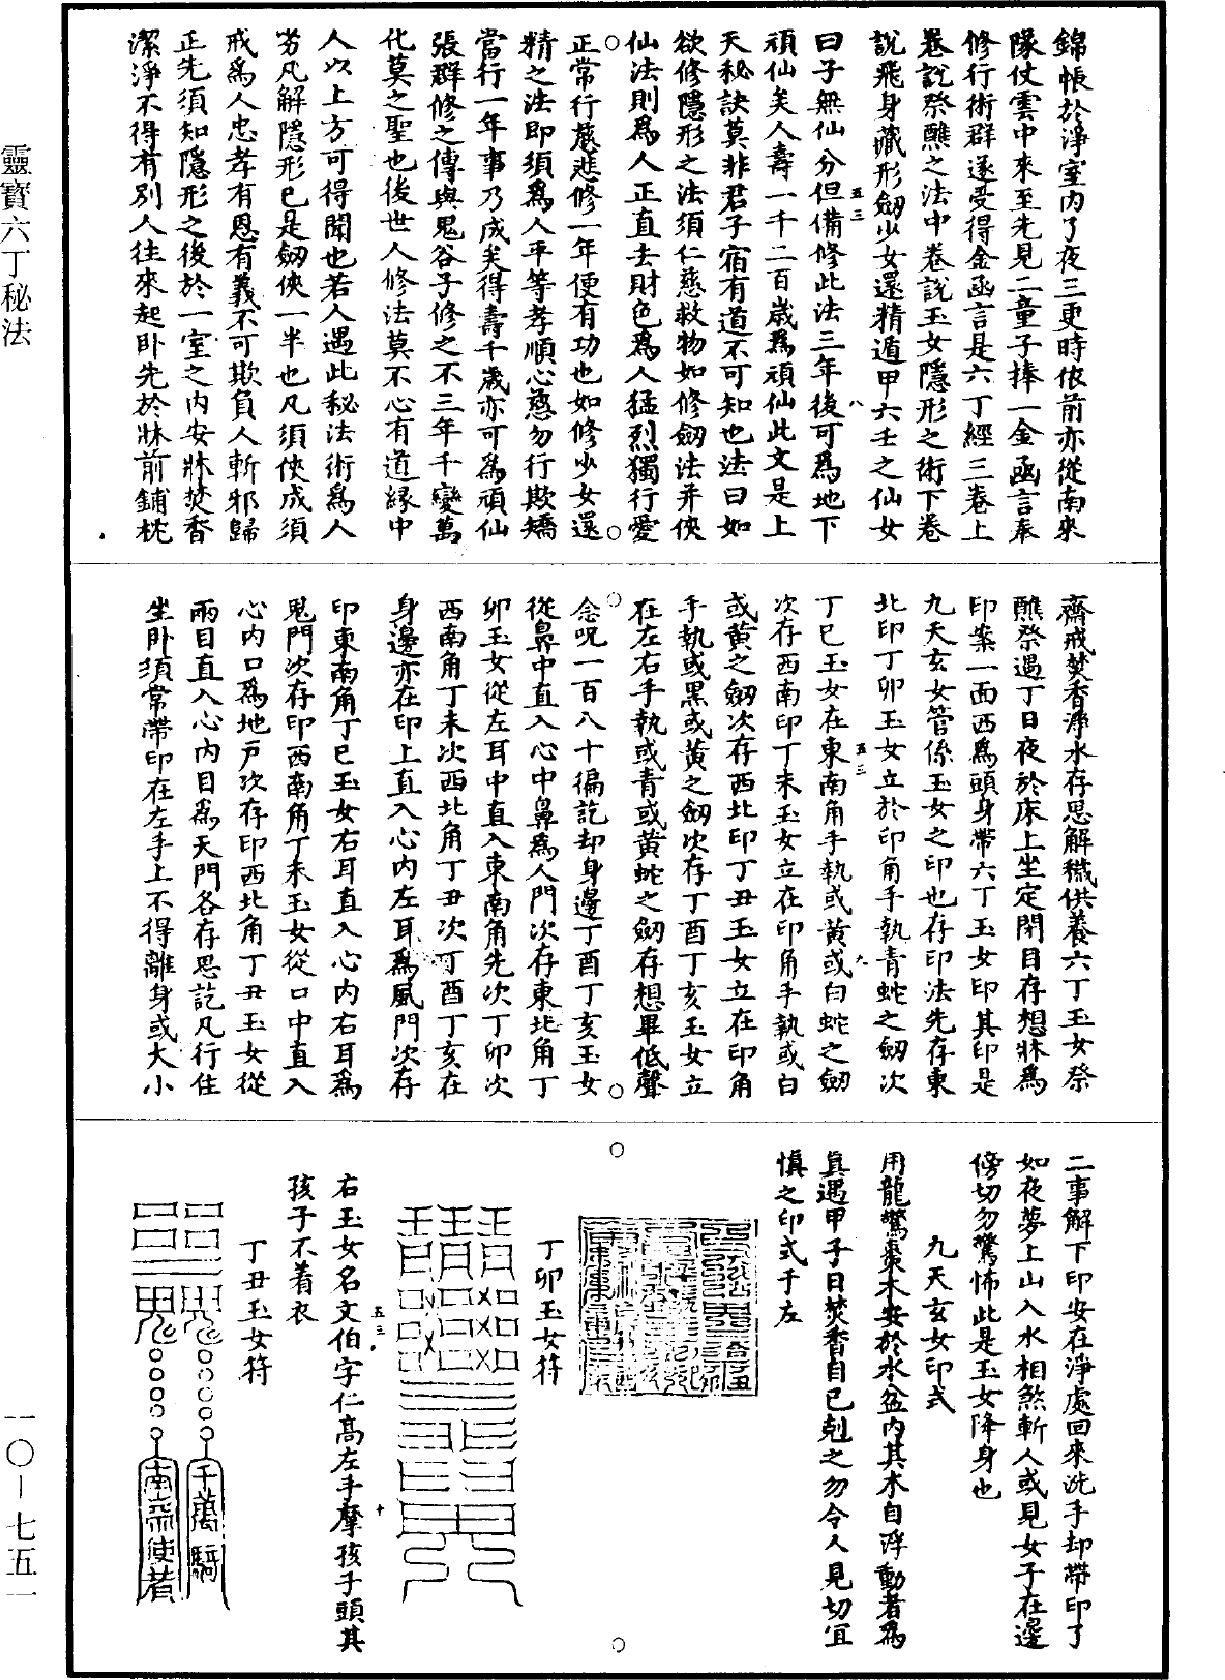 錦帳於淨室內了夜三更時依前亦從南來
隊仗雲中來至先見二童子捧一金函言奉
修行術群遂受得金函言是六丁經三卷上
卷說祭醮之法中卷說玉女隱形之術下卷
說飛身藏形劒少女還精遁甲六壬之仙女
曰子無仙分但備修此法三年後可爲地下
頑仙矣人壽一千二百歲爲頑仙此文是上
天秘訣莫非君子宿有道不可知也法曰如
欲修隱形之法須仁慈救物如修劒法并俠
仙法則爲人正直去財色爲人猛烈獨行愛
正常行慈悲修一年便有功也如修少女還
精之法即須爲人平等孝順心慈勿行欺矯
當行一年事乃成矣得壽千歲亦可爲頑仙
張群修之傳與鬼谷子修之不三年千變萬
化莫之聖也後世人修法莫不心有道緣中
人以上方可得聞也若人遇此秘法術爲人
劣凡解隱形已是劒俠一半也凡須俠成須
戒爲人忠孝有恩有義不可欺負人斬邪歸
正先須知隱形之後於一室之內安牀焚香
潔淨不得有別人往來起卧先於牀前鋪枕
齋戒焚香淨水存思解穢供養六丁玉女祭
醮祭遇丁日夜於床上坐定閉目存想牀爲
印案一面西爲頭身帶六丁玉女印其印是
九天玄女管係玉女之印也存印法先存東
北印丁卯玉女立於印角手執青蛇之劒次
丁巳玉女在東南角手執或黃或白蛇之劒
次存西南印丁未玉女立在印角手執或白
或黃之劒次存西北印丁丑玉女立在印角
手執或黑或黃之劒次存丁酉丁亥玉女立
在左右手執或青或黃蛇之劒存想畢低聲
念呪一百八十徧訖却身邊丁酉丁亥玉女
從鼻中直入心中鼻爲人門次存東北角丁
卯玉女從左耳中直入東南角先次丁卯次
西南角丁未次西北角丁丑次丁酉丁亥在
身邊亦在印上直入心內左耳爲風門次存
印東南角丁巳玉女右耳直入心內右耳爲
鬼門次存印西南角丁未玉女從口中直入
心內口爲地戶次存印西北角丁丑玉女從
兩目直入心內目爲天門各存思訖凡行住
坐卧須常帶印在左手上不得離身或大小
二事解下印安在淨處回來洗手却帶印了
如夜夢上山入水相煞斬人或見女子在邊
傍切勿驚怖此是玉女降身也
九天玄女印式
用龍驚棗木安於水盆內其木自浮動者爲
真遇甲子日焚香自己剋之勿令人見切宜
慎之印式于左
丁卯玉女符
右玉女名文伯字仁高左手摩孩子頭其
孩子不着衣
丁丑玉女符
千萬騎
使者
五三
八
五三
九
五三
十
靈寶六丁秘法
一〇—七五一